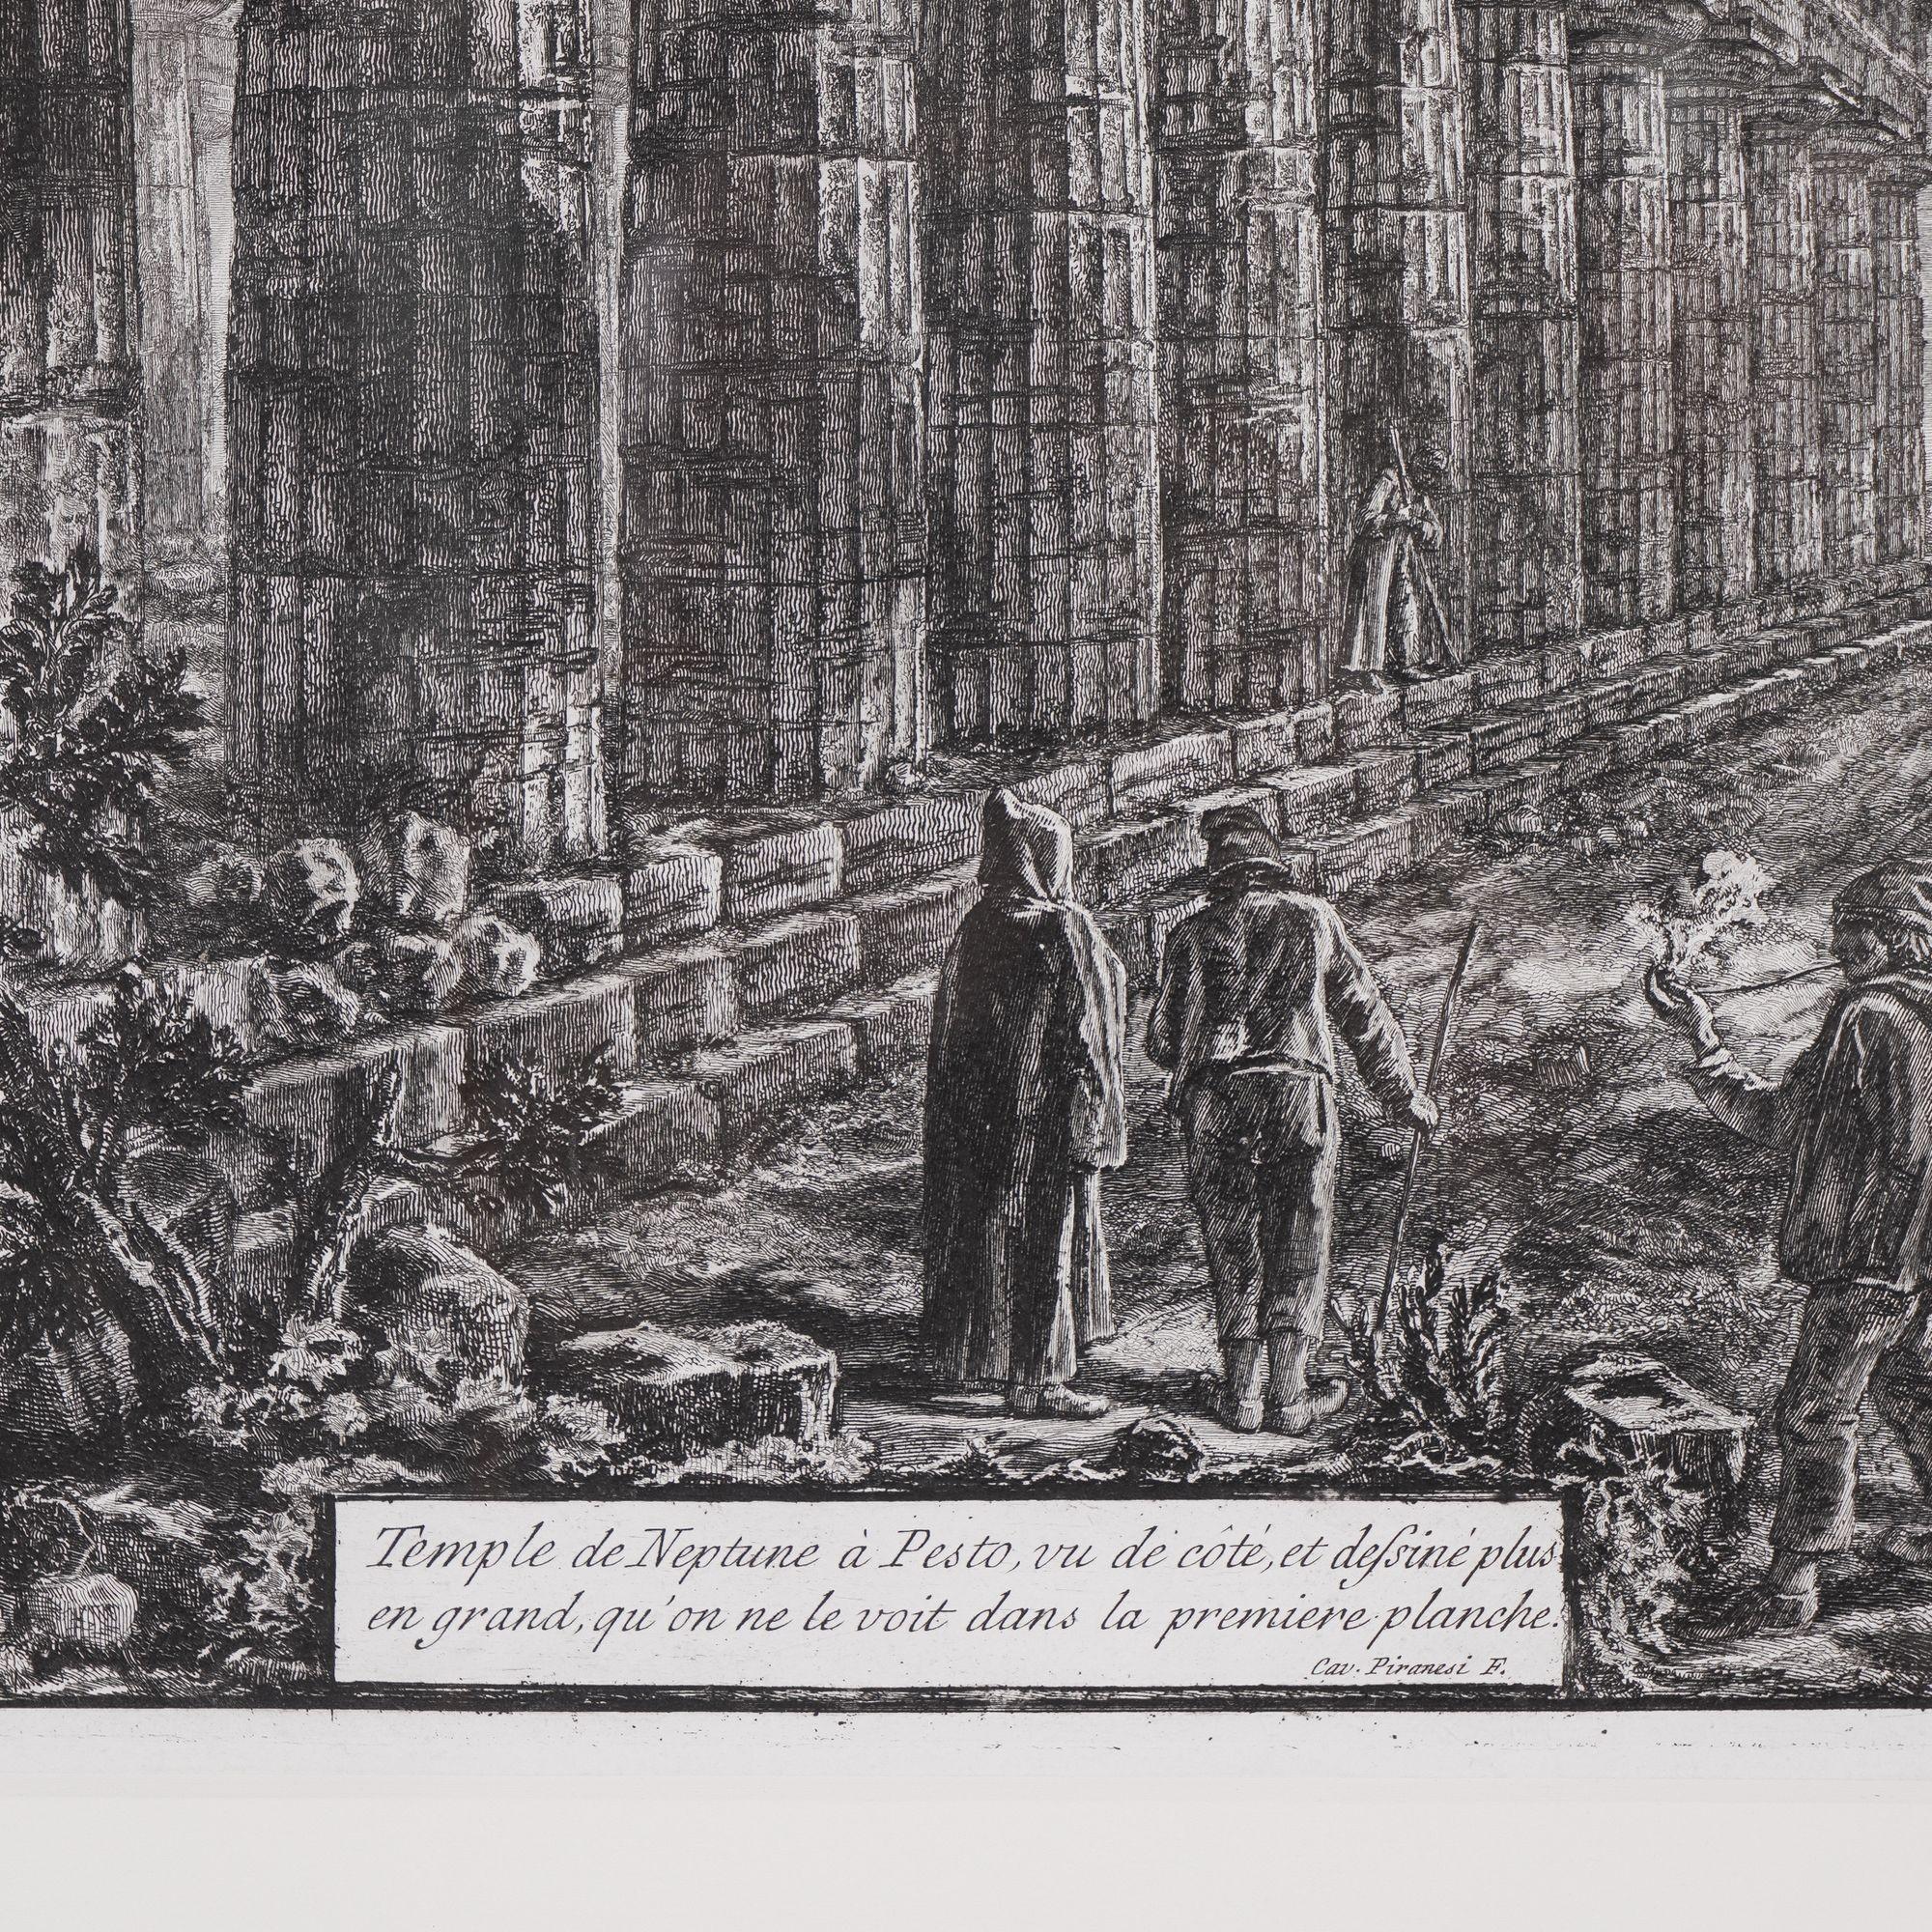 Temple de Neptune à Pesto, vu de côté, et deſsiné plus
en grand, qu'on ne le voit dans la premiere planche.
Cav. Piranesi F.